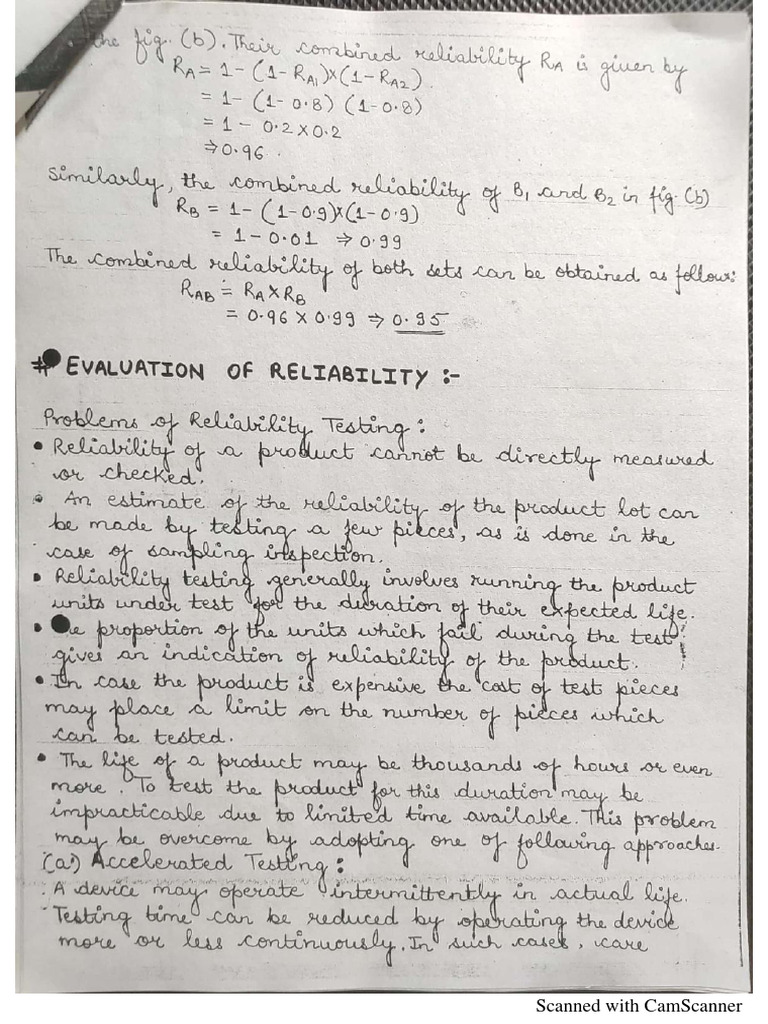 the fig. (b). Their combined reliability RA is given by
RA = 1-(1-RA1)×(1-RA2).
= 1-(1-0.8) (1-0.8)
= 1 - 0.2×0.2
⇒ 0.96.
Similarly, the combined reliability of B1 and B2 in fig. (b)
RB = 1-(1-0.9)×(1-0.9)
= 1-0.01 ⇒ 0.99
The combined reliability of both sets can be obtained as follow:
RAB = RA×RB
= 0.96 × 0.99 ⇒ 0.95
# EVALUATION OF RELIABILITY :-
Problems of Reliability Testing:
• Reliability of a product cannot be directly measured
or checked.
• An estimate of the reliability of the product lot can
be made by testing a few pieces, as is done in the
case of sampling inspection.
• Reliability testing generally involves running the product
units under test for the duration of their expected life.
• e proportion of the units which fail during the test
gives an indication of reliability of the product.
• In case the product is expensive the cost of test pieces
may place a limit on the number of pieces which
can be tested.
• The life of a product may be thousands of hours or even
more. To test the product for this duration may be
impracticable due to limited time available. This problem
may be overcome by adopting one of following approaches.
(a) Accelerated Testing:
. A device may operate intermittently in actual life.
Testing time can be reduced by operating the device
more or less continuously. In such cases, care
Scanned with CamScanner